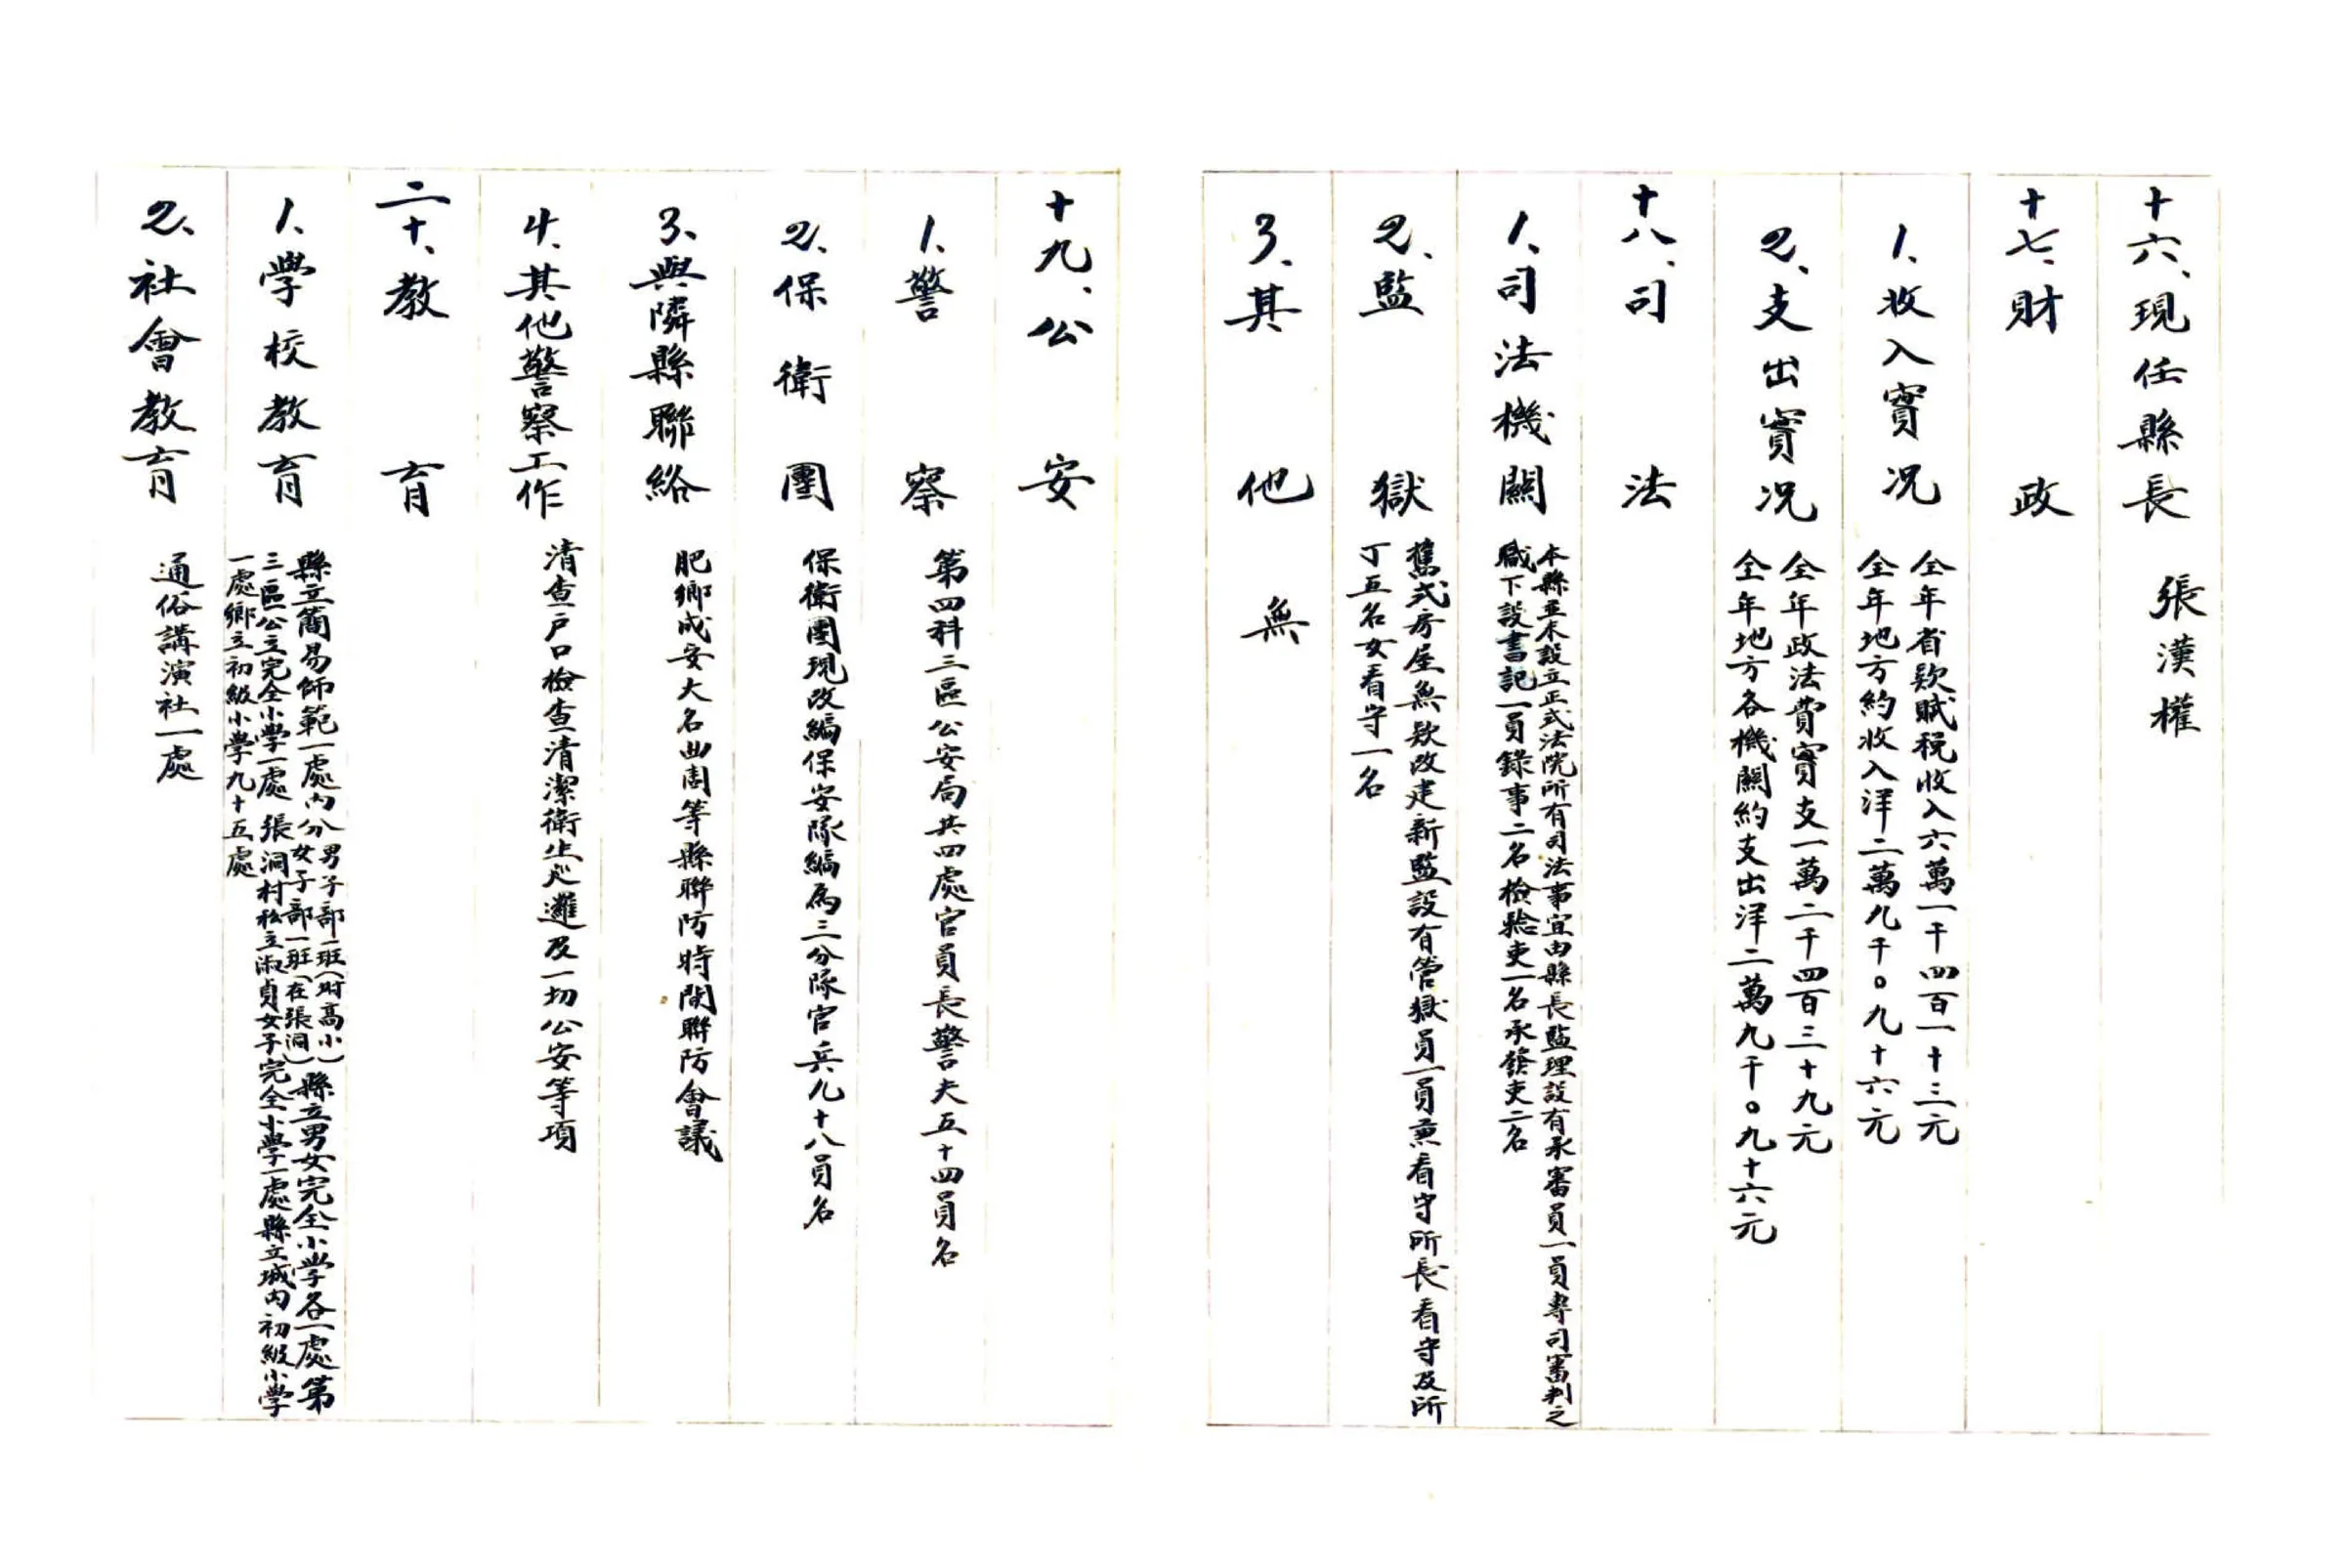 十六、現任縣長 張漢權
十七、財政
1、收入實况 全年省欵賦税收入六萬一千四百一十三元
全年地方約收入洋二萬九千〇九十六元
2、支出實况 全年政法費實支一萬二千四百三十九元
全年地方各機關約支出洋二萬九千〇九十六元
十八、司法
1、司法機關 本縣並未設立正式法院所有司法事宜由縣長監理設有承審員一員專司審判之
職下設書記一員錄事二名檢驗吏一名承發吏二名
2、監獄 舊式房屋無欵改建新監設有管獄員一員兼看守所長看守及所
丁五名女看守一名
3、其他 無
十九、公安
1、警察 第四科三區公安局共四處官員長警夫五十四員名
2、保衛團 保衛團現改編保安隊編為三分隊官兵九十八員名
3、與隣縣聯絡 肥鄉成安大名曲周等縣聯防時開聯防會議
4、其他警察工作 清查户口檢查清潔衛生巡邏及一切公安等項
二十、教育
1、學校教育 縣立簡易師範一處内分男子部一班(附高小)女子部一班(在張洞)縣立男女完全小學各一處第
三區公立完全小學一處張洞村私立淑貞女子完全小學一處縣立城内初級小學
一處鄉立初級小學九十五處
2、社會教育 通俗講演社一處